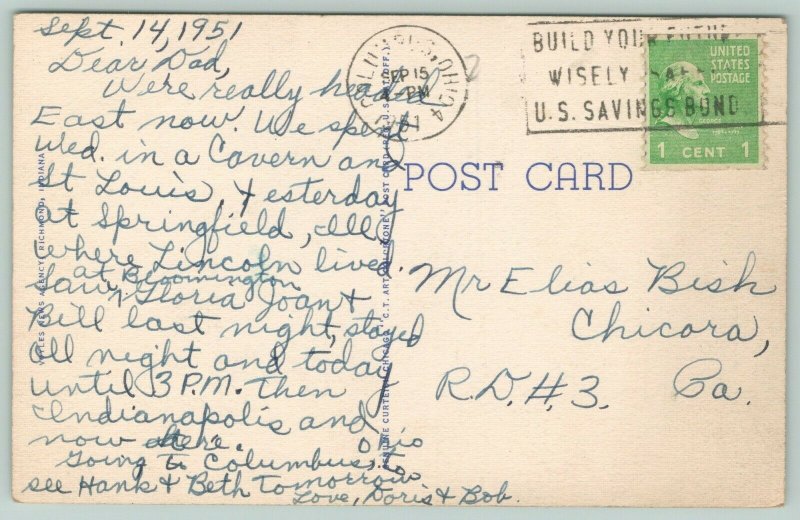 Sept. 14, 1951
Dear Dad,
We're really headed
East now. We spent
Wed. in a Cavern and
St Louis, yesterday
at Springfield, Ill
where Lincoln lived.
at Bloomington
Saw Gloria Joan &
Bill last night, stayed
all night and today
until 3 P.M. then
Indianapolis and
now here.
Going to Columbus, Ohio to
see Hank & Beth Tomorrow
Love, Doris & Bob.
COLUMBUS, OHIO 4
SEP 15
PM
1951
BUILD YOUR FUTURE
WISELY SAFELY
U.S. SAVINGS BOND
UNITED
STATES
POSTAGE
1 CENT 1
POST CARD
Mr Elias Bish
Chicora,
R.D.#3. Pa.
NEWS AGENCY, RICHMOND, INDIANA
GENUINE CURTEICH-CHICAGO "C.T. ART-COLORTONE" POST CARD (REG. U.S. PAT. OFF.)